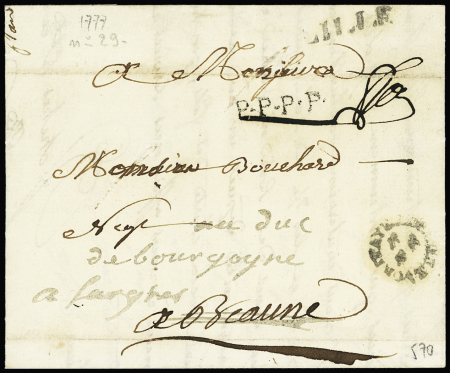 1777
n° 29.
LILLE
a Monsieur
P.P.P.P.
Monsieur Bouchard
Neg^t au duc
de bourgogne
a
a Beaune
570